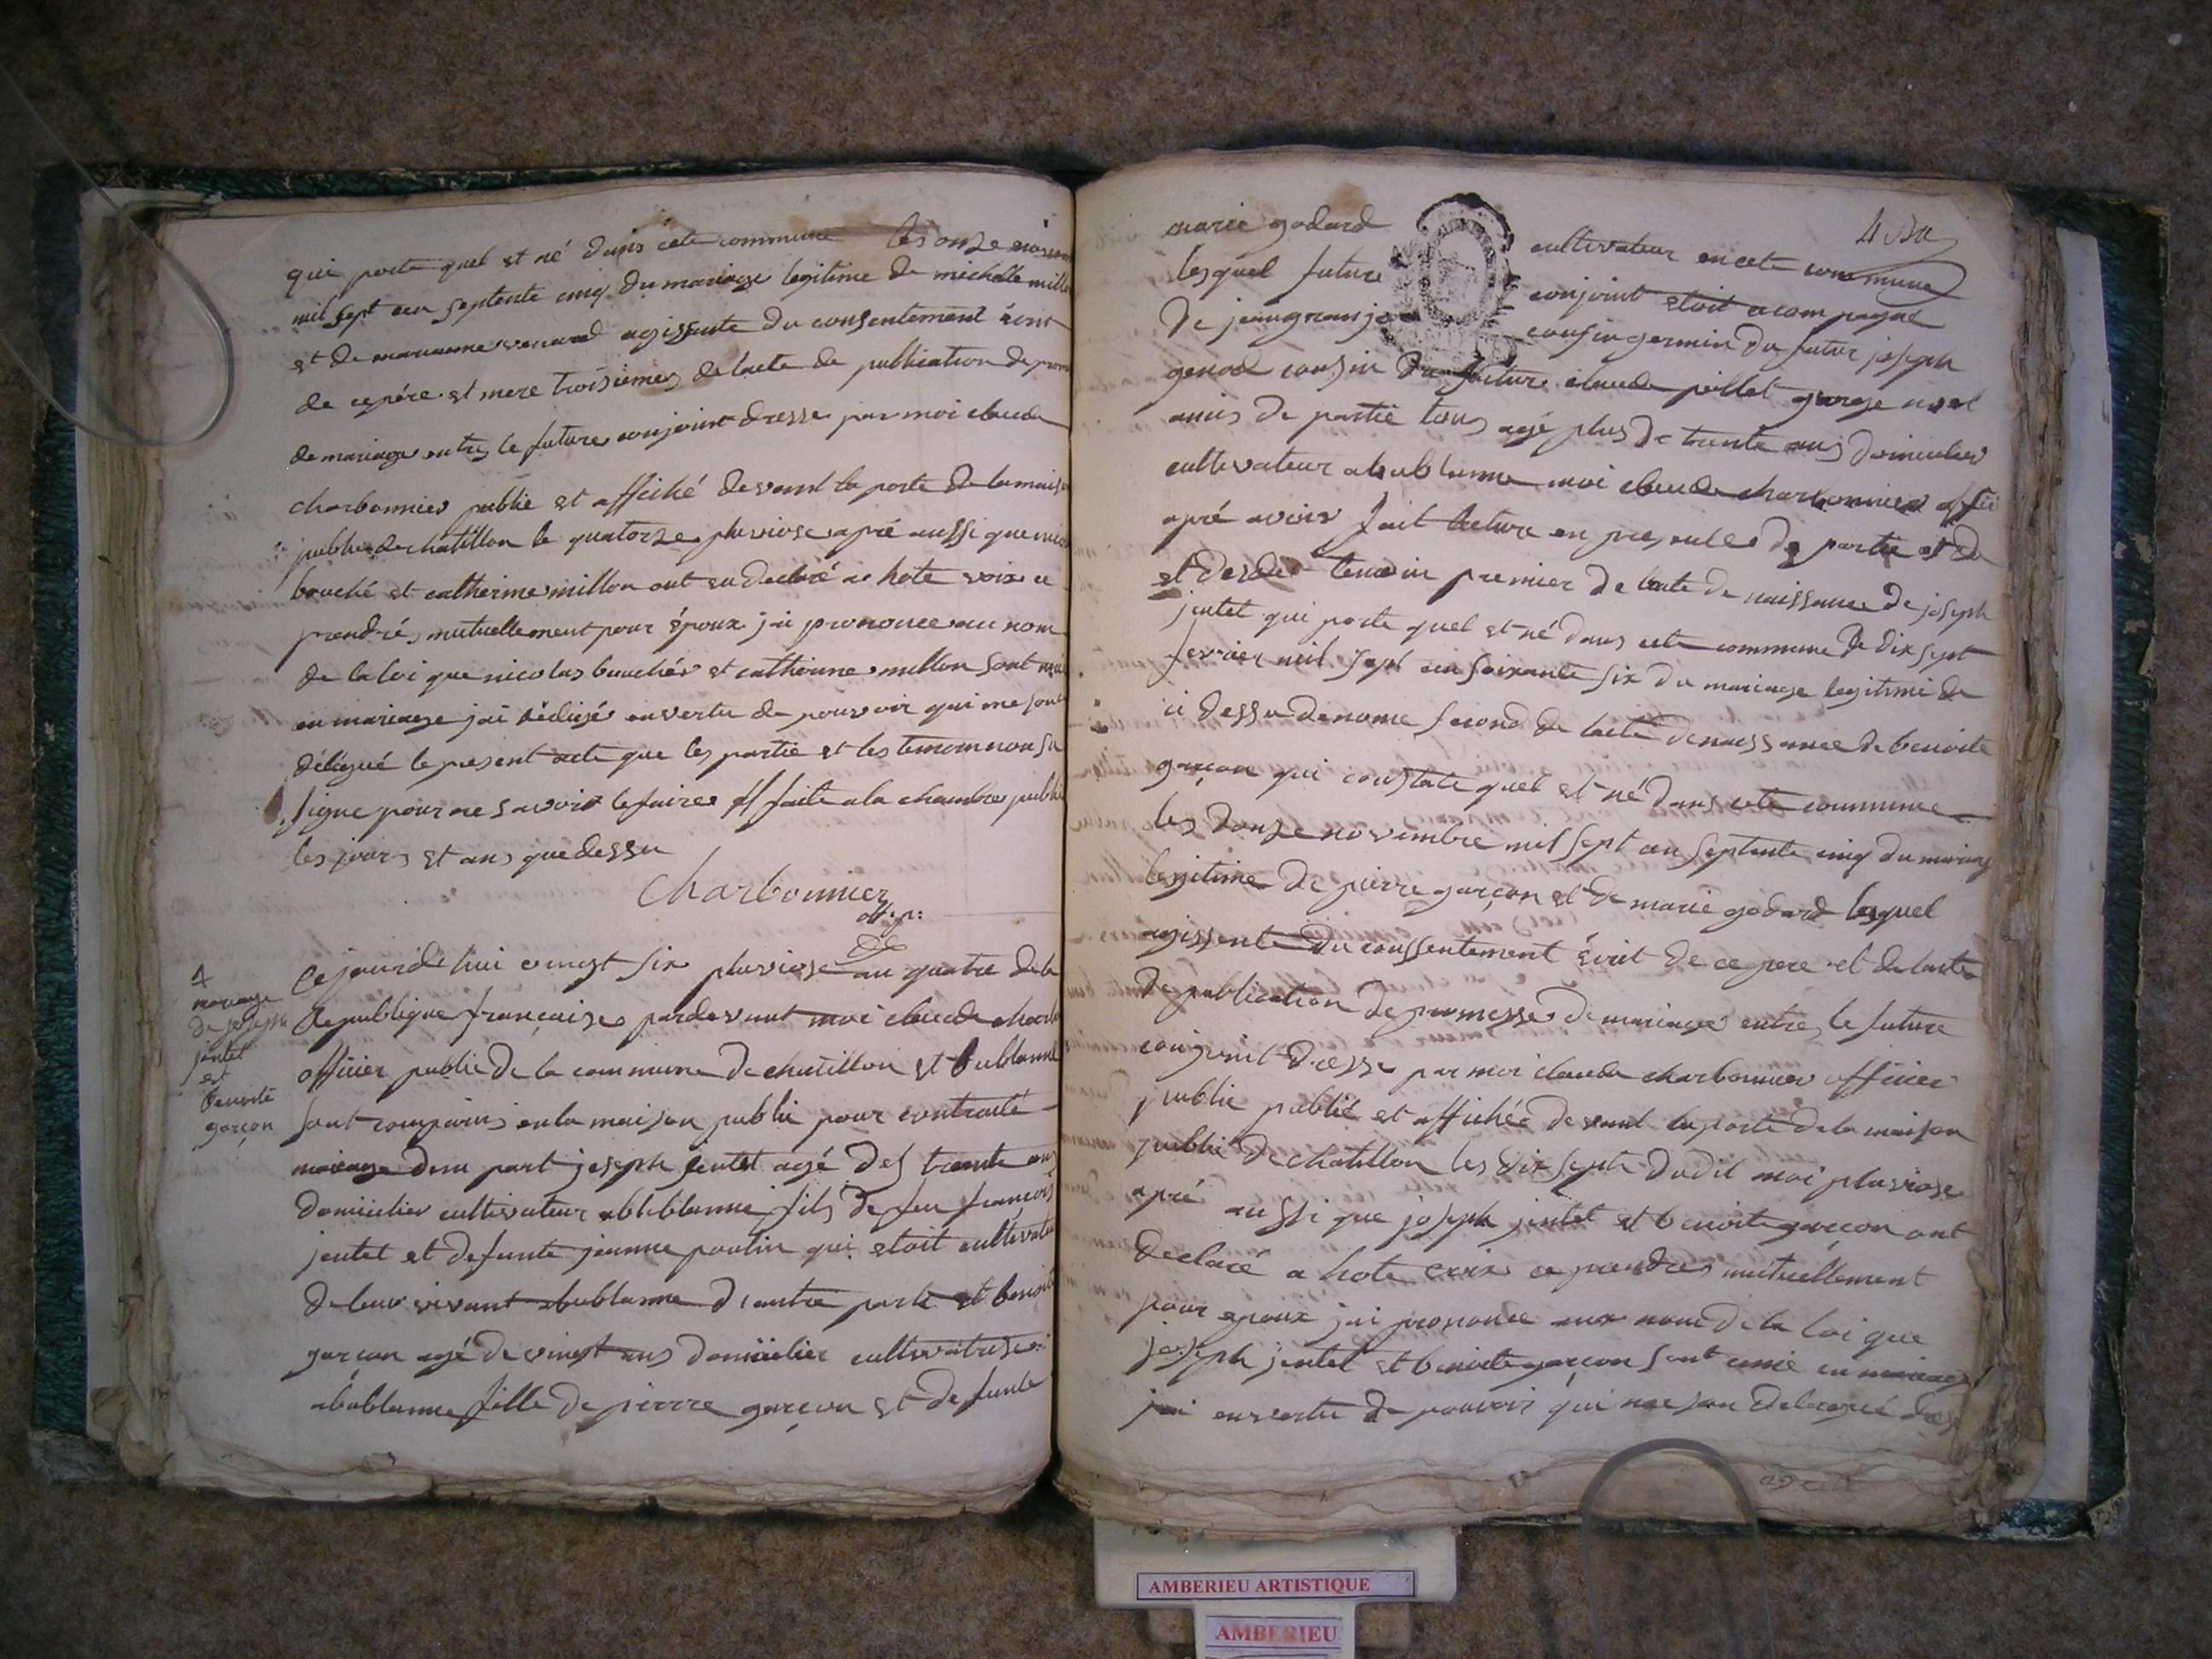 qui porte quel et né dans cete commune les onze
mil sept cen septente cinq du mariage legitime de michelle mille
et de marianne agissente du consentement
de ce pére et mere troisiemes de lacte de publication de
de mariage entres le future conjoint dresse par moi claude
charbonnier publié et affiché devant la porte de la maiso
public de chatillon le quatorze pluviose apré aussi que
bouché et catherine millon ont declaré a hote voix ce
prendrés mutuellement pour époux jai prononce au nom
de la loi que nicolas bouchér et catherine millon sont
en mariage jai rédigé en vertu de pouvoir qui me
délégué le present acte que les partie et les temoin non
signe pour ne savoir le faire faite a la chambre publi
les jours et ans que dessu
Charbonnier
off. p:
4
mariage
de joseph
jantet
et
benoite
garçon
Cejourdhui vingt six pluviose an quatre de la
Republique française pardevant moi claude charb
officier public de la commune de chatillon et bublanne
sont comparus en la maison public pour contracté
mariage dun part joseph jentet agé des trente ans
domicilier cultivateur abublanne fils de feu francois
jentet et defunte jeanne poulin qui etoit cultivateu
de leur vivant abublanne d'autre parte et benoite
garcon agé de vingt ans domicilier cultivatrise
abublanne fille de pierre garçon et defunte
4
marie godard cultivateur en cete commune
lesquel future conjoint etoit acompagné
de jean cousin germin du futur joseph
genod cousin du future claude pillet
amis de partie tous agé plus de trente ans domicilier
cultivateur abublanne moi claude charbonnier offici
apré avoir fait lecture en de partie et
et desdit temoin premier de lacte de naissance de joseph
jentet qui porte quel et né dans cete commune le dix sept
fevrier mil sept cen soixante six du mariage legitime de
ci dessu denome second de lacte de naissance de benoite
garçon qui constate quel et né dans cete commune
les douze novembre mil sept cen septente cinq du mariag
legitime de pierre garçon et de marie godard lesquel
agissente du conssentement écrit de ce pere et de lacte
de publication de promesse de mariage entres le future
conjoint dresse par moi claude charbonnier officier
public publié et affichée devant la porte de la maison
public de chatillon les dix septe dudit moi pluviose
apré aussi que joseph jentet et benoite garçon ont
declaré a hote voix ce prendres mutuellement
pour epoux jai prononce aux nom de la loi que
joseph jentet et benoite garçon sont unie en mariage
jai en vertu de pouvoir qui me son delegué
AMBERIEU ARTISTIQUE
AMBERIEU